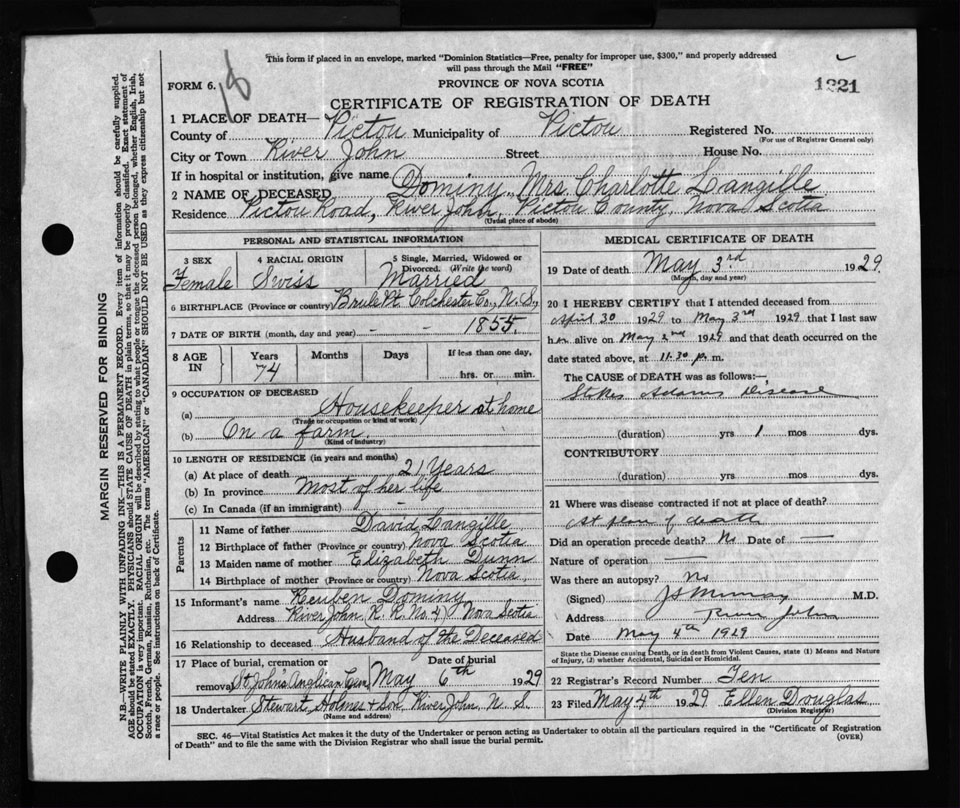 This form if placed in an envelope, marked "Dominion Statistics—Free, penalty for improper use, $300," and properly addressed
will pass through the Mail "FREE"
FORM 6.
18
PROVINCE OF NOVA SCOTIA
1321
CERTIFICATE OF REGISTRATION OF DEATH
1 PLACE OF DEATH—
County of Pictou Municipality of Pictou Registered No.
(For use of Registrar General only)
City or Town River John Street House No.
If in hospital or institution, give name
2 NAME OF DECEASED Dominy, Mrs. Charlotte Langille
Residence Pictou Road, River John, Pictou County, Nova Scotia
(Usual place of abode)
PERSONAL AND STATISTICAL INFORMATION
3 SEX Female
4 RACIAL ORIGIN Swiss
5 Single, Married, Widowed or Divorced. (Write the word) Married
6 BIRTHPLACE (Province or country) Brule Pt. Colchester Co., N.S.,
7 DATE OF BIRTH (month, day and year) - - 1855.
8 AGE IN Years Months Days If less than one day,
74 hrs. or min.
9 OCCUPATION OF DECEASED
(a) Housekeeper at home
(Trade or occupation or kind of work)
(b) On a farm.
(Kind of industry)
10 LENGTH OF RESIDENCE (in years and months)
(a) At place of death 21 Years
(b) In province Most of her life
(c) In Canada (if an immigrant) -
Parents
11 Name of father David Langille
12 Birthplace of father (Province or country) Nova Scotia
13 Maiden name of mother Elizabeth Dunn
14 Birthplace of mother (Province or country) Nova Scotia
15 Informant's name Reuben Dominy
Address River John (R. R. No. 4) Nova Scotia
16 Relationship to deceased Husband of the Deceased
17 Place of burial, cremation or removal St. John's Anglican Cem. Date of burial May 6th 1929
18 Undertaker Stewart Holmes & son, River John, N. S.
(Name and address)
MEDICAL CERTIFICATE OF DEATH
19 Date of death May 3rd 1929.
(Month, day and year)
20 I HEREBY CERTIFY that I attended deceased from
April 30 1929 to May 3rd 1929 that I last saw
her alive on May 2nd 1929 and that death occurred on the
date stated above, at 11.30 p.m.
The CAUSE OF DEATH was as follows:—
Stokes Adams Disease
(duration) yrs 1 mos dys.
CONTRIBUTORY
(duration) yrs. mos. dys.
21 Where was disease contracted if not at place of death?
At place of death
Did an operation precede death? No Date of —
Nature of operation —
Was there an autopsy? No
(Signed) Murray M.D.
Address River John
Date May 4th 1929
State the Disease causing Death, or in death from Violent Causes, state (1) Means and Nature
of Injury, (2) whether Accidental, Suicidal or Homicidal.
22 Registrar's Record Number Ten
23 Filed May 4th 1929 Ellen Douglas
(Division Registrar)
SEC. 46—Vital Statistics Act makes it the duty of the Undertaker or person acting as Undertaker to obtain all the particulars required in the "Certificate of Registration
of Death" and to file the same with the Division Registrar who shall issue the burial permit.
(OVER)
MARGIN RESERVED FOR BINDING
N.B.—WRITE PLAINLY WITH UNFADING INK—THIS IS A PERMANENT RECORD. Every item of information should be carefully supplied.
AGE should be stated EXACTLY. PHYSICIANS should STATE CAUSE OF DEATH in plain terms, so that it may be properly classified. Exact statement of
OCCUPATION is very important. RACIAL ORIGIN will be described by stating to what people or tongue the deceased person belonged, whether English, Irish,
Scotch, French, German, Russian, Ruthenian, etc. The terms "AMERICAN" or "CANADIAN" SHOULD NOT BE USED as they express citizenship but not
a race or people. See instructions on back of Certificate.